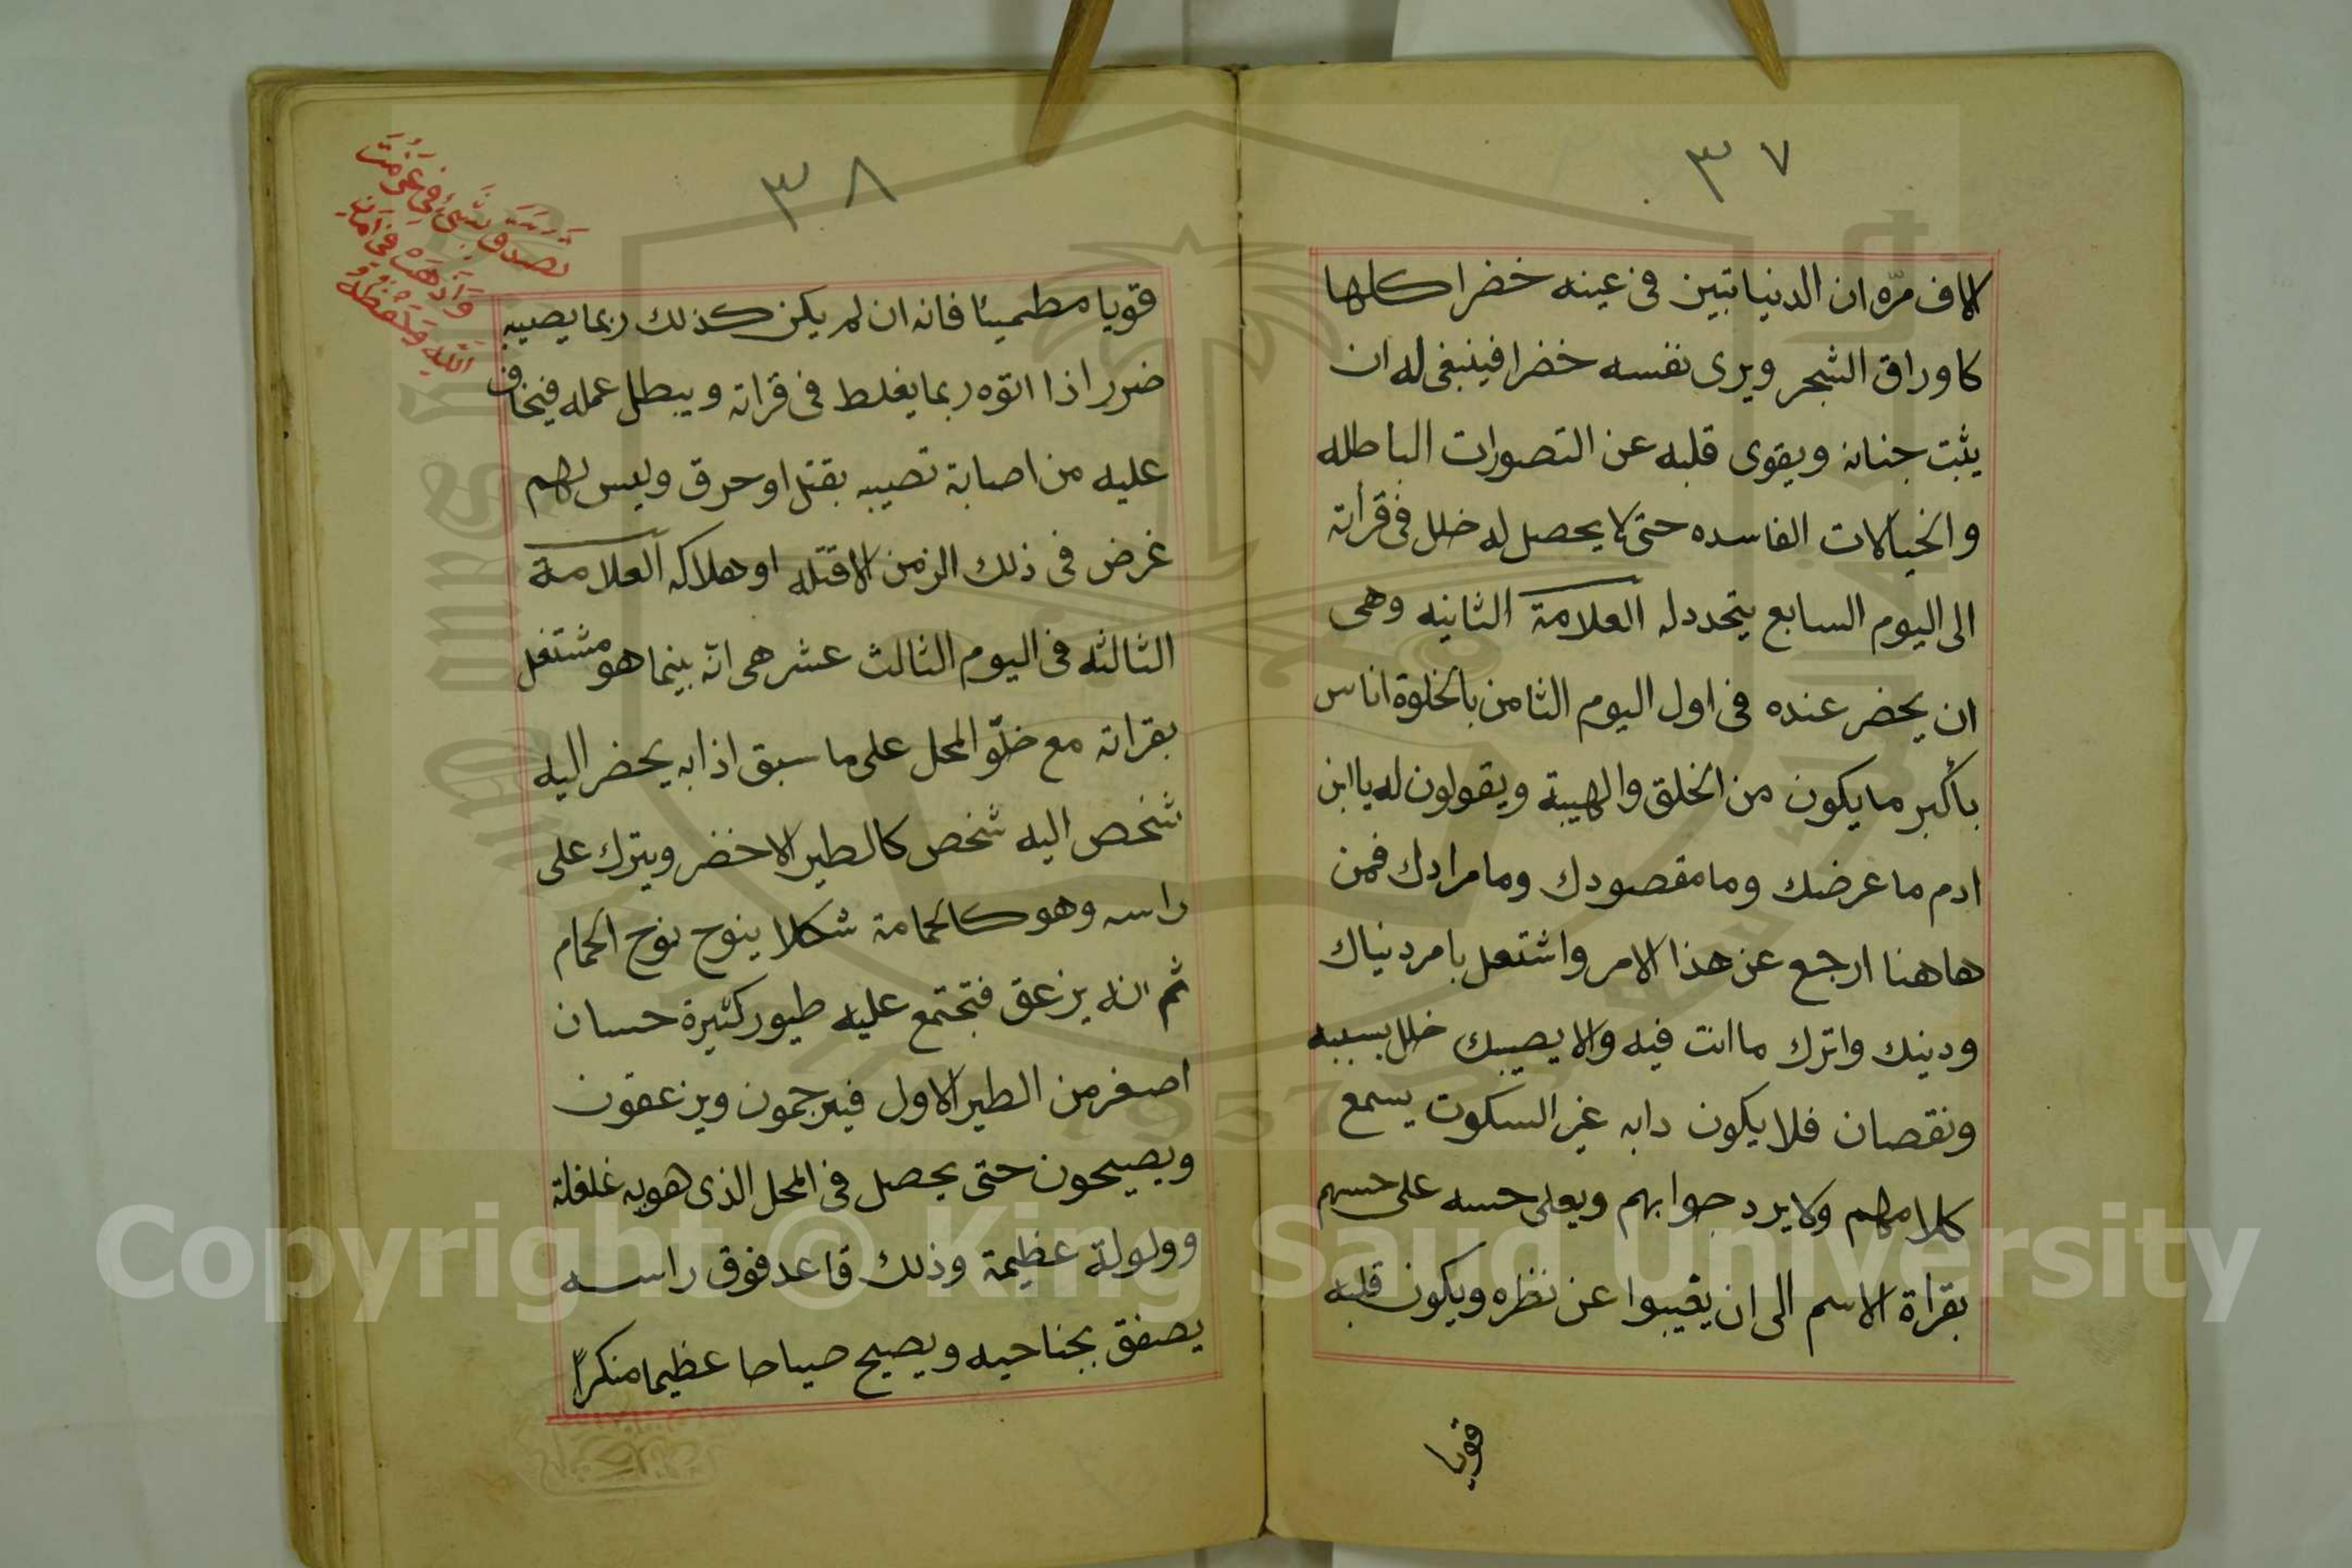 ٣٧
الاف مرّه ان الدنيا تبين فى عينه خضرا كلها
كاوراق الشجر ويرى نفسه خضرا فينبغى له ان
يثبت جنانه ويقوى قلبه عن التصورات الباطله
والخيالات الفاسده حتى لا يحصل له خلل فى قرأته
الى اليوم السابع يتحدد له العلامة الثانيه وهى
ان يحضر عنده فى اول اليوم الثامن بالخلوة اناس
بأكبر ما يكون من الخلق والهيبة ويقولون له يا ابن
ادم ما عرضك وما مقصودك وما مرادك فمن
هاهنا ارجع عن هذا الامر واشتعل بامر دنياك
ودينك واترك ما انت فيه والا يصيبك خلل بسببه
ونقصان فلا يكون دابه غير السكوت يسمع
كلامهم ولا يرد جوابهم ويعلى حسه على حسهم
بقراة الاسم الى ان يغيبوا عن نظره ويكون قلبه
قويا
٣٨
قويا مطمينا فانه ان لم يكن كذلك ربما يصيبه
ضرر اذا اتوه ربما يغلط فى قراته ويبطل عمله فيخاف
عليه من اصابة تصيبه بقتل او حرق وليس لهم
غرض فى ذلك الزمن الا قتله او هلاكه العلامة
الثالثه فى اليوم الثالث عشر هى انه بينما هو مشتغل
بقراته مع خلوّ المحل على ما سبق اذا به يحضر اليه
شخص اليه شخص كالطير الاخضر ويترك على
راسه وهو كالحمامة شكلا ينوح نوح الحمام
ثم انه يزعق فتجتمع عليه طيور كثيرة حسان
اصغر من الطير الاول فيرجمون ويزعقون
ويصيحون حتى يحصل فى المحل الذى هو به غلغلة
وولولة عظيمة وذلك قاعد فوق راسه
يصفق بجناحيه ويصيح صياحا عظيما منكراً
تصدق بشئ فى
فى امان
الله
Copyright © King Saud University
1957